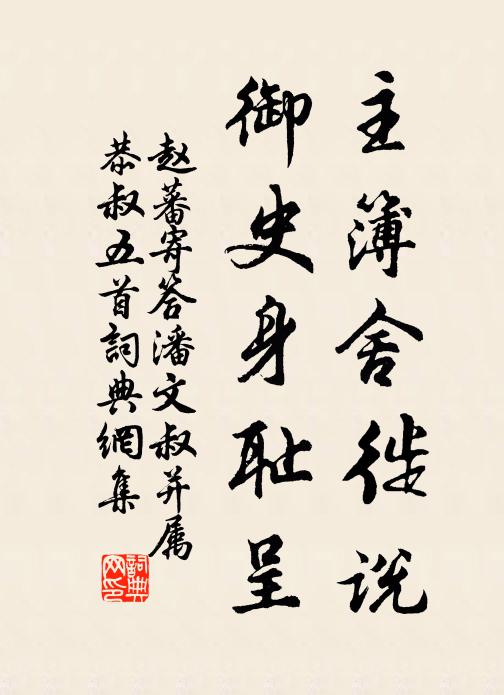 主簿舍徙说
御史身耻呈
赵蕃寄答潘文叔并属
恭叔五首詞典網集
詞典网印